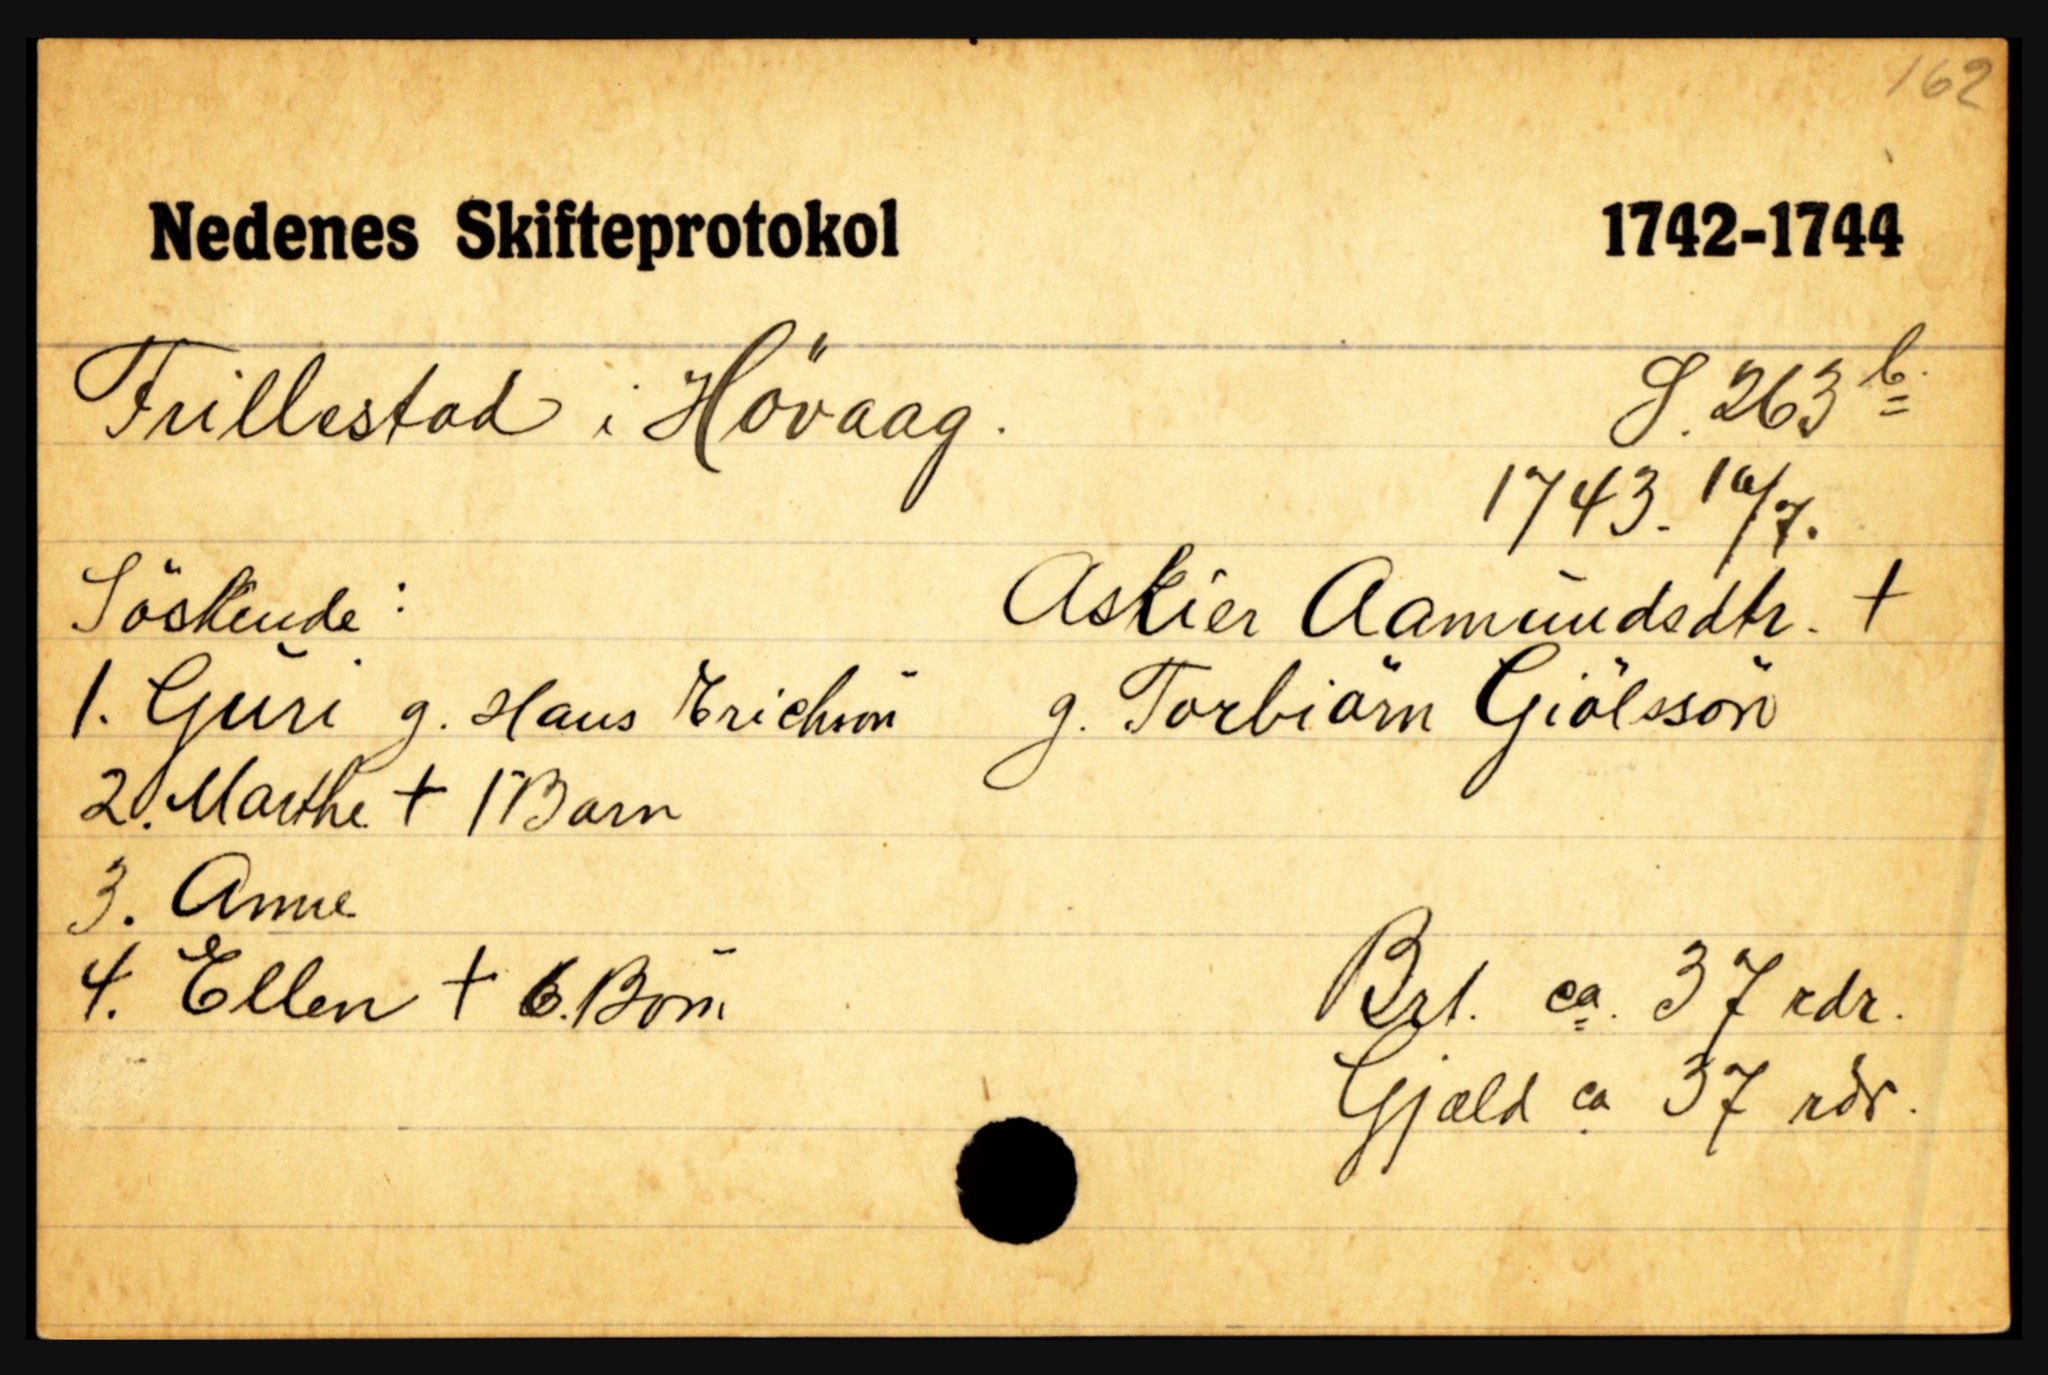 162
Nedenes Skifteprotokol 1742-1744
Frillestad i Hövaag. S. 263 b.
1743. 10/7.
Söskende: Askier Aamundsdtr. +
1. Guri g. Hans Erichsön g. Torbiörn Giölssön
2. Marthe + 1 Barn
3. Anne
4. Ellen + 6. Börn Brt. ca. 37 rdr.
Gjæld ca 37 rdr.